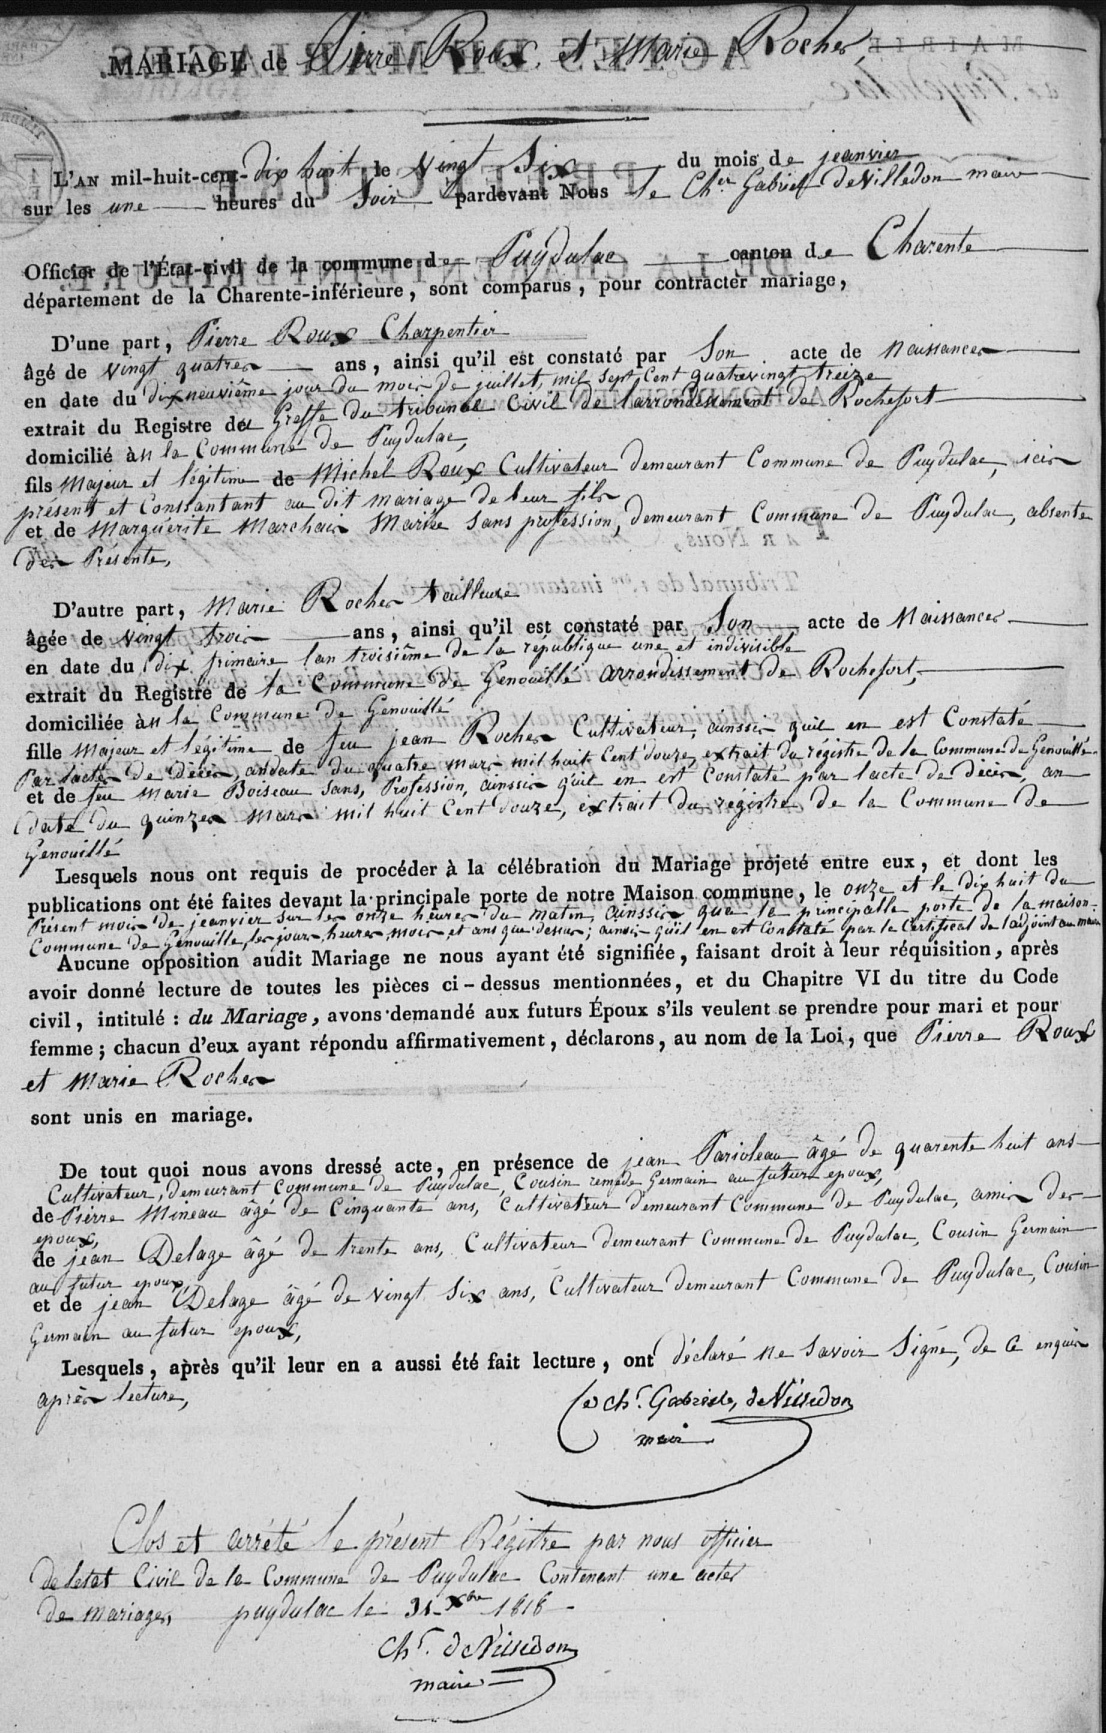 MARIAGE de Pierre Roux et Marie Rocher
L'AN mil-huit-cent-dix huit le vingt Six du mois de jeanvier
sur les une heures du Soir pardevant Nous le Cher Gabriel deVilledon maire
Officier de l'État-civil de la commune de Puydulac canton de Charente
département de la Charente-inférieure, sont comparus, pour contracter mariage,
D'une part, Pierre Roux Charpentier
âgé de vingt quatre ans, ainsi qu'il est constaté par Son acte de Naissance
en date du dixneuvième jour du mois de juillet, mil Sept Cent quatrevingt treize
extrait du Registre du Greffe du tribunal Civil de l'arrondissement de Rochefort
domicilié à la Commune de Puydulac,
fils Majeur et légitime de Michel Roux Cultivateur demeurant Commune de Puydulac, ici
présent et Consantant au dit mariage de leur fils
et de Marguerite Marchais Mariée Sans profession, demeurant Commune de Puydulac, absente
de Présente,
D'autre part, Marie Rocher tailleuse
âgée de vingt trois ans, ainsi qu'il est constaté par Son acte de Naissance
en date du dix frimaire l'an troisième de la république une et indivisible
extrait du Registre de la Commune de Genouillé arrondissement de Rochefort,
domiciliée à la Commune de Genouillé
fille Majeur et légitime de feu jean Rocher Cultivateur, ainssi quil en est Constaté
Par l'acte de décès, andate du quatre mars mil huit Cent douze, extrait du registre de la Commune de Genouillé
et de feu Marie Boiseau Sans, Profession, ainssi quil en est Constaté par l'acte de décès, an
date du quinze mars mil huit Cent douze, extrait du registre de la Commune de
Genouillé
Lesquels nous ont requis de procéder à la célébration du Mariage projeté entre eux, et dont les
publications ont été faites devant la principale porte de notre Maison commune, le onze et le dix huit du
Présent mois de jeanvier sur les onze heures du matin, ainssi que la principalle porte de la maison
Commune de Genouillé, les jours, heures, mois et ans que dessus; ainsi quil en est Constaté par le Certificat de l'adjoint au maire
Aucune opposition audit Mariage ne nous ayant été signifiée, faisant droit à leur réquisition, après
avoir donné lecture de toutes les pièces ci-dessus mentionnées, et du Chapitre VI du titre du Code
civil, intitulé : du Mariage, avons demandé aux futurs Époux s'ils veulent se prendre pour mari et pour
femme; chacun d'eux ayant répondu affirmativement, déclarons, au nom de la Loi, que Pierre Roux
et Marie Rocher
sont unis en mariage.
De tout quoi nous avons dressé acte, en présence de jean Parioleau âgé de quarente huit ans
Cultivateur, demeurant Commune de Puydulac, Cousin Germain au futur epoux,
de Pierre Mineau âgé de Cinquante ans, Cultivateur demeurant Commune de Puydulac, ami des
epoux,
de jean Delage âgé de trente ans, Cultivateur demeurant Commune de Puydulac, Cousin Germain
au futur epoux,
et de jean Delage âgé de vingt Six ans, Cultivateur demeurant Commune de Puydulac, Cousin
Germain au futur epoux,
Lesquels, après qu'il leur en a aussi été fait lecture, ont déclaré ne Savoir Signé, de ce enquis
après lecture,
Le ch. Gabriele, deVilledon
maire
Clos et arrété le présent Régitre par nous officier
de letat Civil de la Commune de Puydulac Contenant une actes
de mariages, puydulac le 31 Xbre 1818
Chr. deVilledon
maire